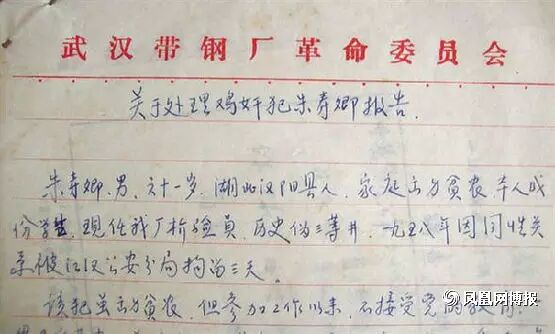 武汉带钢厂革命委员会
关于处理鸡奸犯朱寿卿报告.
朱寿卿，男，六十一岁，湖北汉阳县人，家庭出身贫农，本人成
份学生，现任我厂检验员，历史伪三等兵，一九五八年因同性关
系被江汉公安分局拘留三天。
该犯虽出身贫农，但参加工作以来，不接受党的教育
凤凰网博报